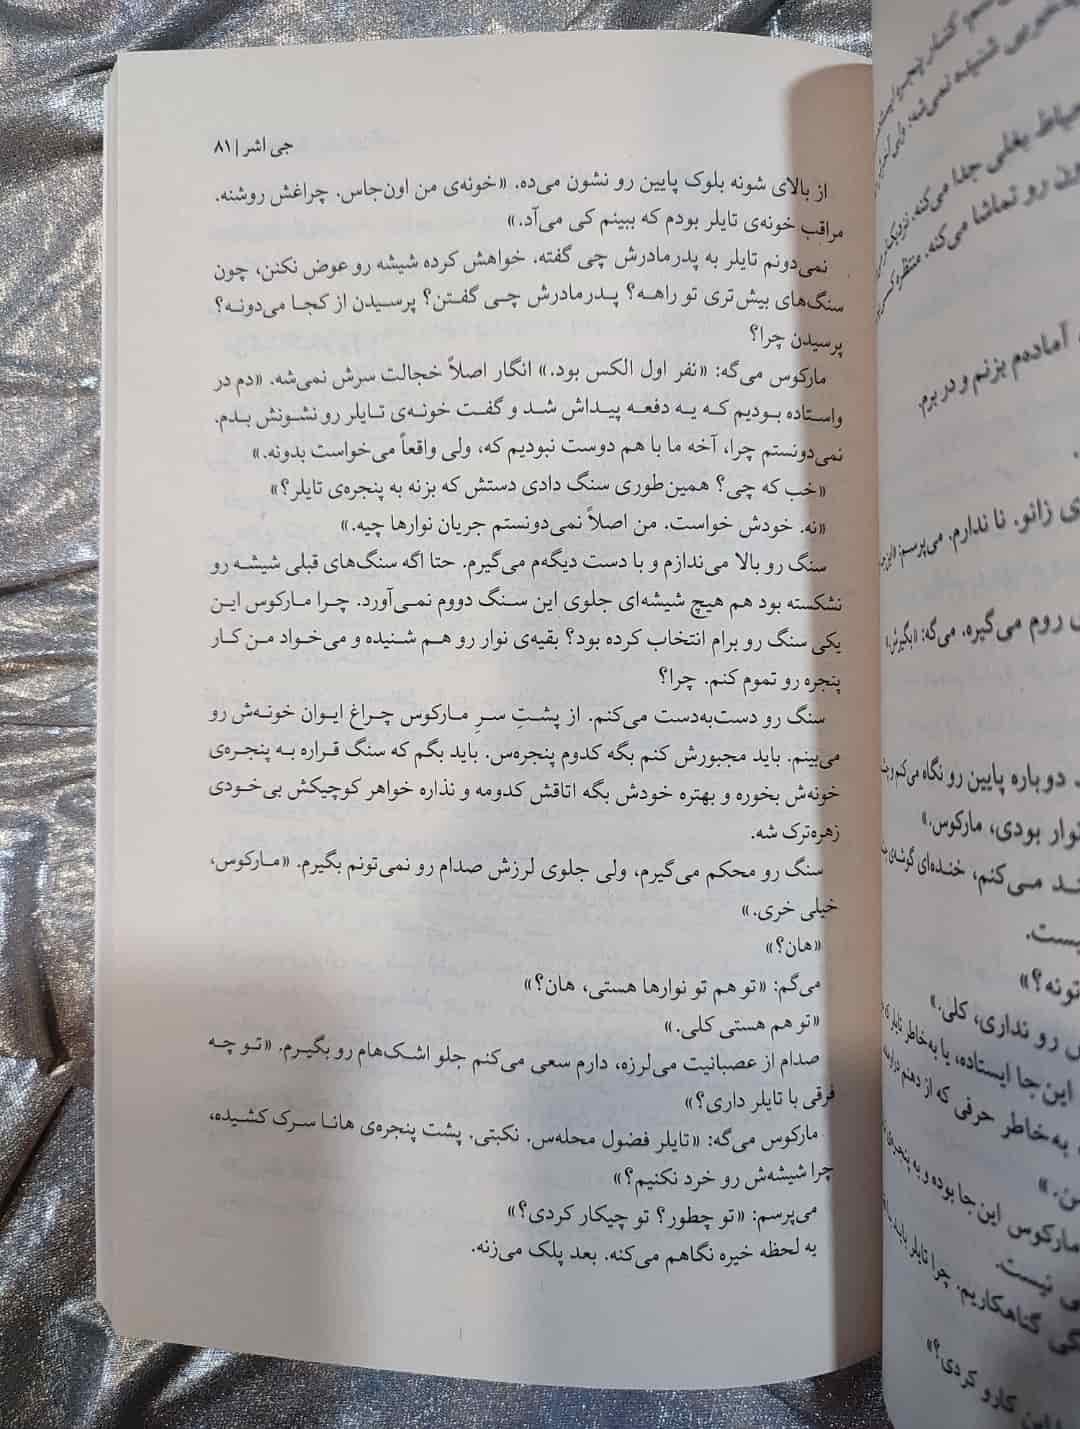 جی اشر | ۸۱
از بالای شونه بلوک پایین رو نشون می‌ده. «خونه‌ی من اون‌جاس. چراغش روشنه.
مراقب خونه‌ی تایلر بودم که ببینم کی می‌آد.»
نمی‌دونم تایلر به پدرمادرش چی گفته. خواهش کرده شیشه رو عوض نکنن، چون
سنگ‌های بیش‌تری تو راهه؟ پدرمادرش چی گفتن؟ پرسیدن از کجا می‌دونه؟
پرسیدن چرا؟
مارکوس می‌گه: «نفر اول الکس بود.» انگار اصلاً خجالت سرش نمی‌شه. «دم در
واستاده بودیم که یه دفعه پیداش شد و گفت خونه‌ی تایلر رو نشونش بدم.
نمی‌دونستم چرا، آخه ما با هم دوست نبودیم که، ولی واقعاً می‌خواست بدونه.»
«خب که چی؟ همین‌طوری سنگ دادی دستش که بزنه به پنجره‌ی تایلر؟»
«نه. خودش خواست. من اصلاً نمی‌دونستم جریان نوارها چیه.»
سنگ رو بالا می‌ندازم و با دست دیگه‌م می‌گیرم. حتا اگه سنگ‌های قبلی شیشه رو
نشکسته بود هم هیچ شیشه‌ای جلوی این سنگ دووم نمی‌آورد. چرا مارکوس این
یکی سنگ رو برام انتخاب کرده بود؟ بقیه‌ی نوار رو هم شنیده و می‌خواد من کار
پنجره رو تموم کنم. چرا؟
سنگ رو دست‌به‌دست می‌کنم. از پشتِ سرِ مارکوس چراغ ایوان خونه‌ش رو
می‌بینم. باید مجبورش کنم بگه کدوم پنجره‌س. باید بگم که سنگ قراره به پنجره‌ی
خونه‌ش بخوره و بهتره خودش بگه اتاقش کدومه و نذاره خواهر کوچیکش بی‌خودی
زهره‌ترک شه.
سنگ رو محکم می‌گیرم، ولی جلوی لرزش صدام رو نمی‌تونم بگیرم. «مارکوس،
خیلی خری.»
«هان؟»
می‌گم: «تو هم تو نوارها هستی، هان؟»
«تو هم هستی کلی.»
صدام از عصبانیت می‌لرزه، دارم سعی می‌کنم جلو اشک‌هام رو بگیرم. «تو چه
فرقی با تایلر داری؟»
مارکوس می‌گه: «تایلر فضول محله‌س. نکبتی. پشت پنجره‌ی هانا سرک کشیده،
چرا شیشه‌ش رو خرد نکنیم؟»
می‌پرسم: «تو چطور؟ تو چیکار کردی؟»
یه لحظه خیره نگاهم می‌کنه. بعد پلک می‌زنه.
کنار پنجره
شنیده نمی‌شه.
حیاط بغلی جدا می‌کنه.
رو تماشا می‌کنه.
آماده‌م بزنم و در برم.
زانو. نا ندارم. می‌پرسم:
روم می‌گیره. می‌گه: «بگیرش.»
دوباره پایین رو نگاه می‌کنم و
نوار بودی، مارکوس.»
می‌کنم، خنده‌ای گوشه‌ی
رو نداری، کلی.»
این جا ایستاده، یا به‌خاطر تایلر که
به‌خاطر حرفی که از دهنم
مارکوس این‌جا بوده و به پنجره‌ی
نیست.
گناهکاریم. چرا تایلر باید
این کارو کردی؟»